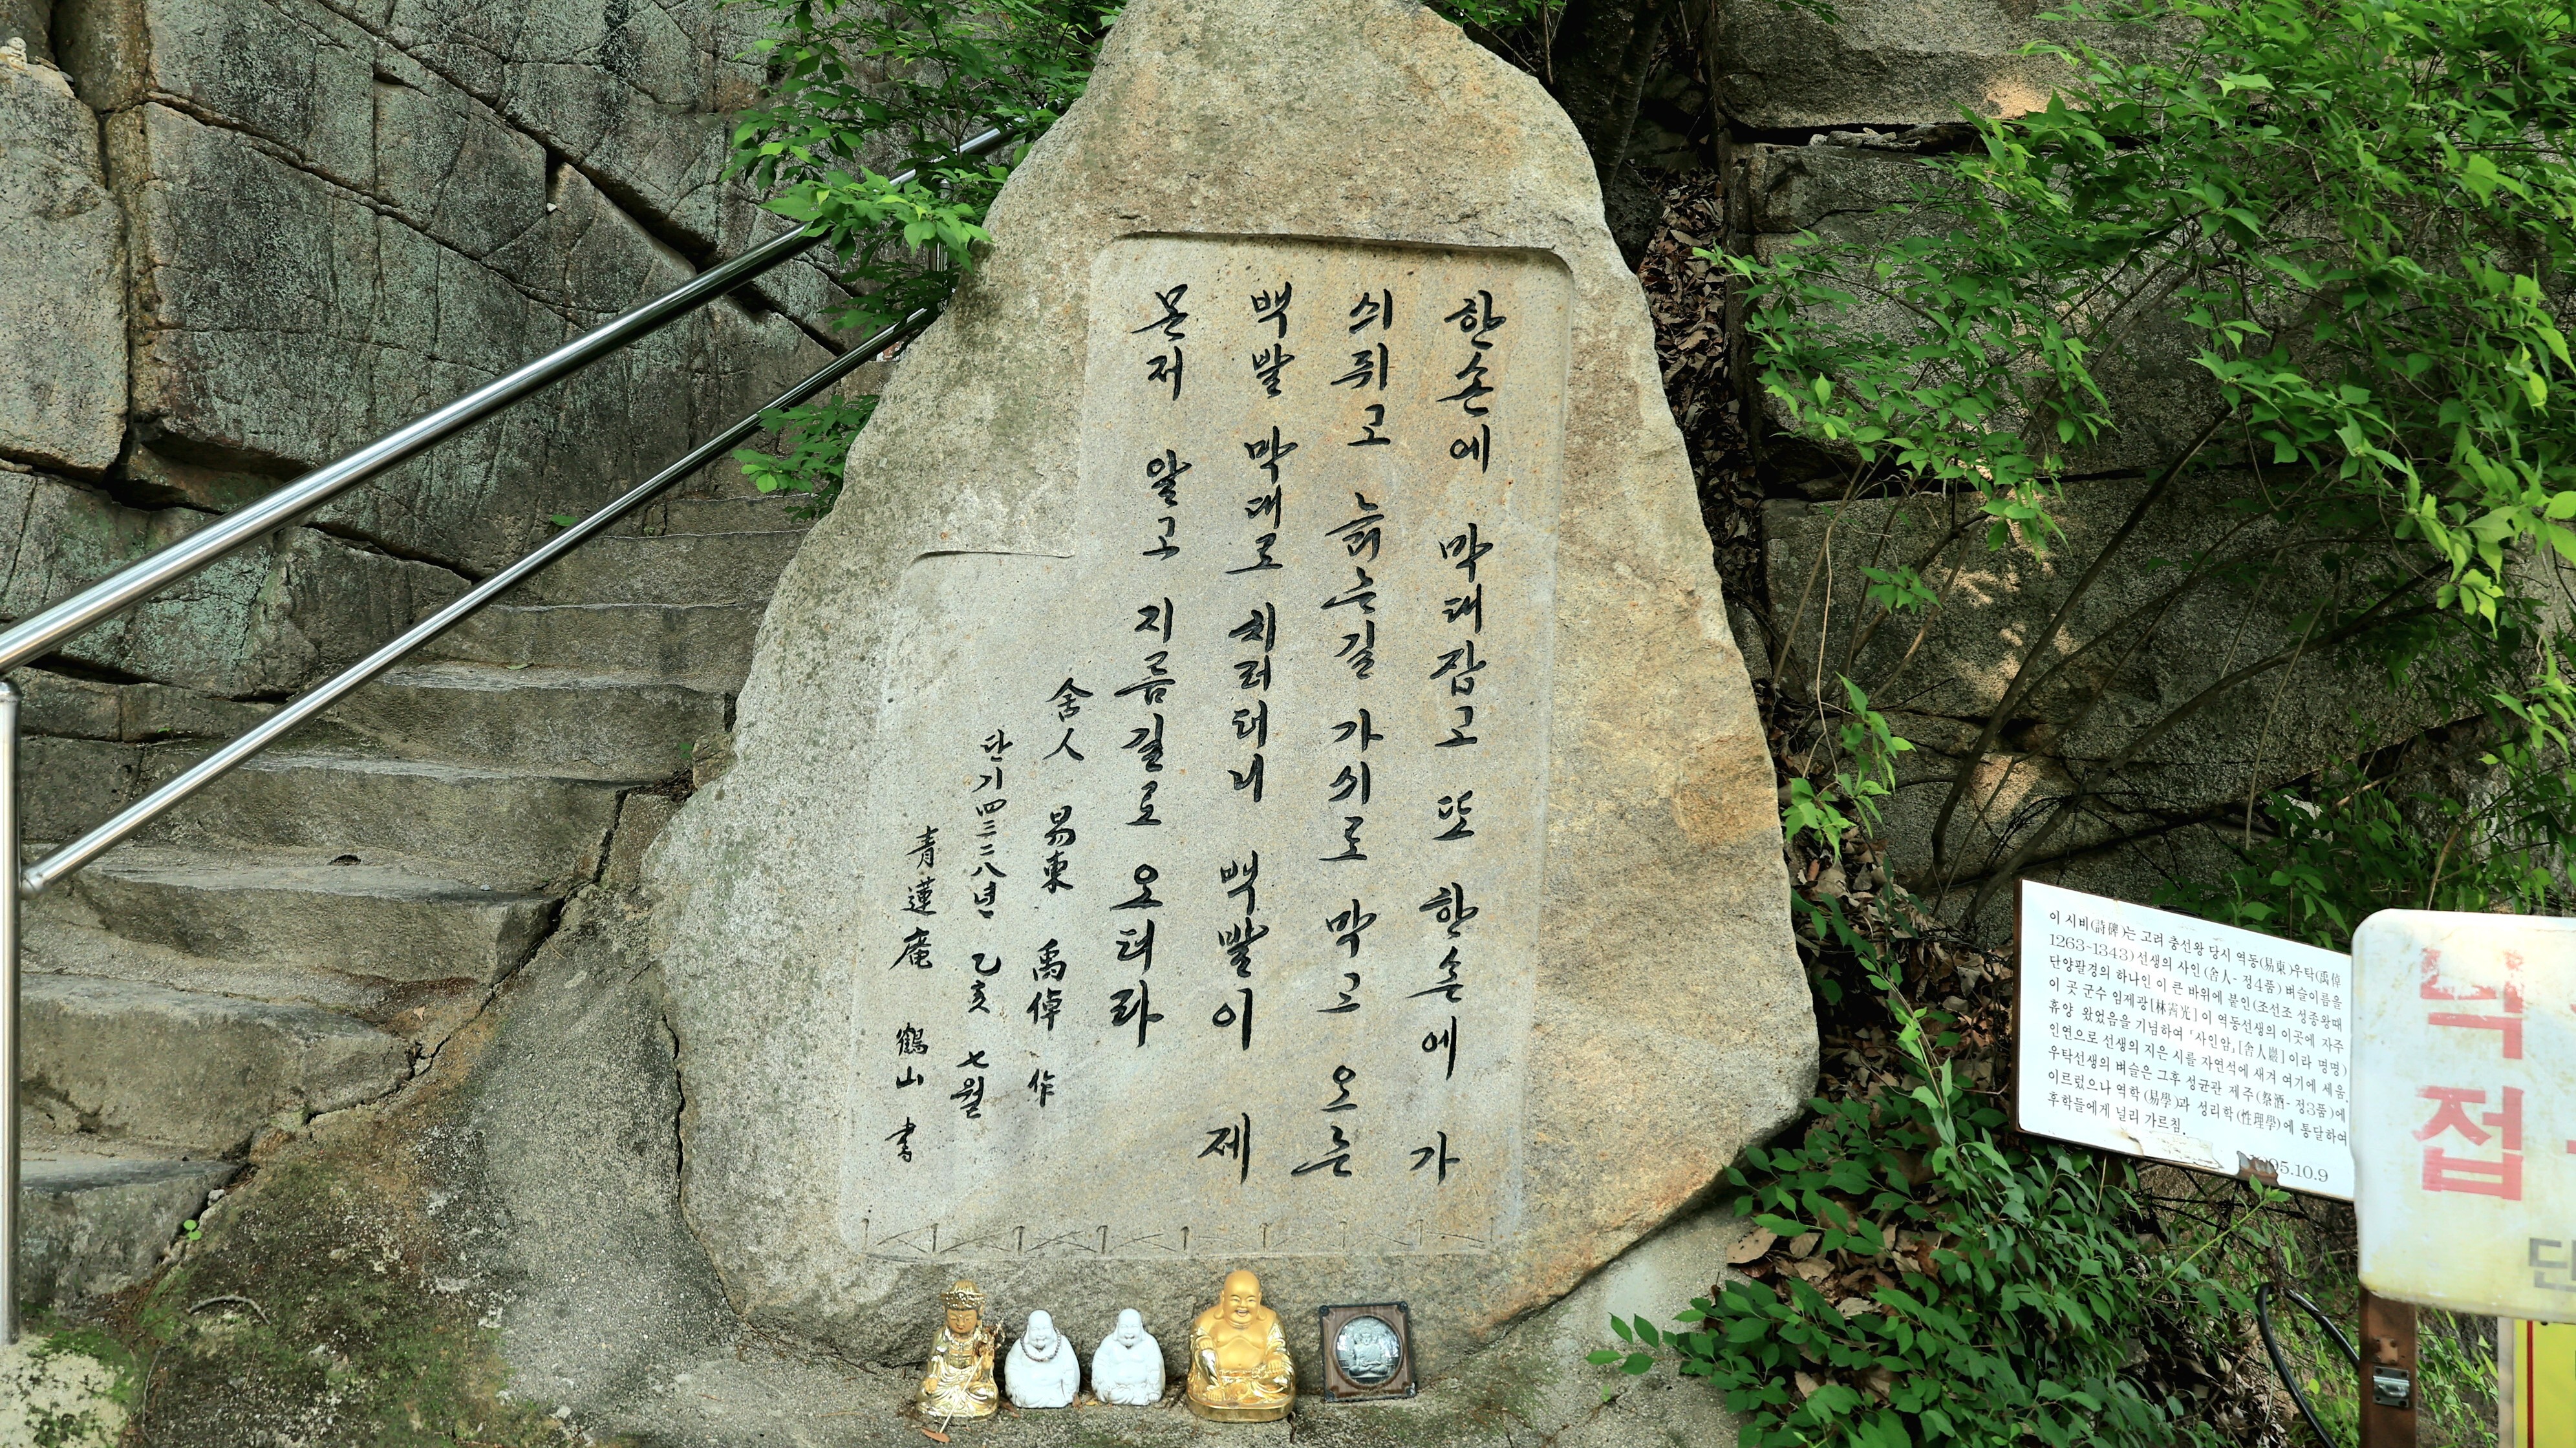 한손에 막대잡고 또 한손에 가
싀쥐고 늙는길 가싀로 막고 오는
백발 막대로 치려터니 백발이 제
몬저 알고 지름길로 오더라
舍人 易東 禹倬 作
단기四三二八년 乙亥 七월
青蓮庵 鶴山 書
이 시비(詩碑)는 고려 충선왕 당시 역동(易東)우탁(禹倬
1263~1343) 선생의 사인(舍人-정4품)벼슬이름을
단양팔경의 하나인 이 큰 바위에 붙인(조선조 성종왕때
이 곳 군수 임제광[林霽光]이 역동선생의 이곳에 자주
휴양 왔었음을 기념하여「사인암」[舍人巖]이라 명명)
인연으로 선생의 지은 시를 자연석에 새겨 여기에 세움.
우탁선생의 벼슬은 그후 성균관 제주(祭酒-정3품)에
이르렀으나 역학(易學)과 성리학(性理學)에 통달하여
후학들에게 널리 가르침.
95.10.9
접
단